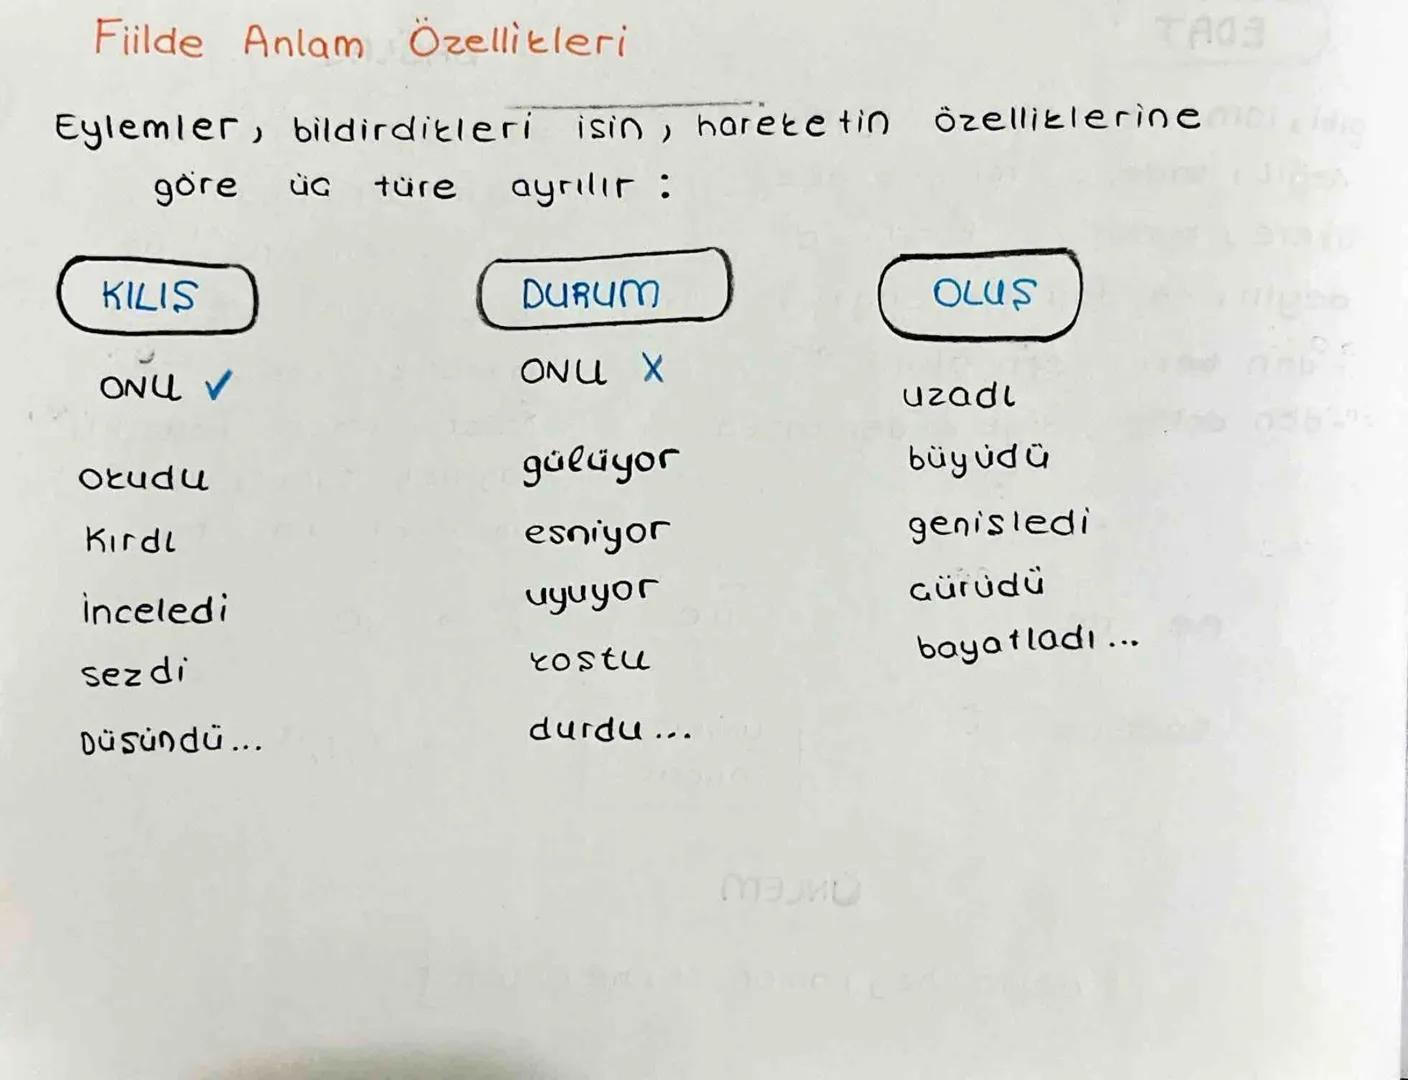 Fiilde Anlam Özellikleri
Eylemler, bildirdikleri isin, hareketin özelliklerine
göre üc türe ayrılır :
KILIŞ
DURUM
OLUŞ
ONU ✓
ONU X
okudu
kırdı
inceledi
sezdi
Düsündü...
gülüyor
esniyor
uyuyor
kostu
durdu...
uzadı
büyüdü
genisledi
cürüdü
bayatladı...